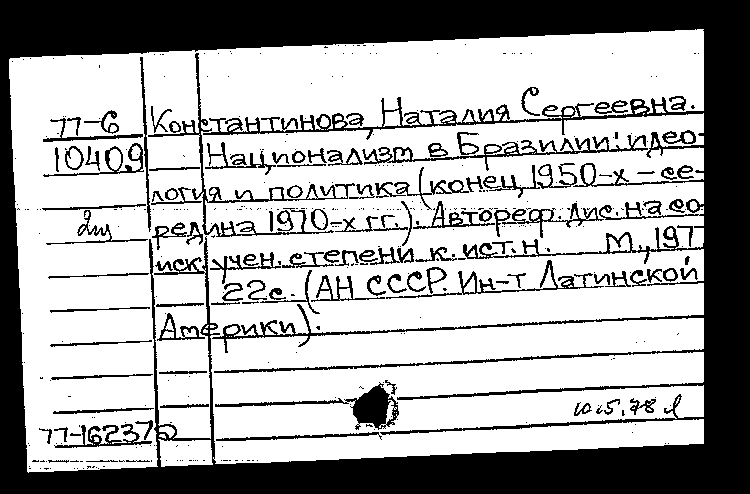 77-6 Константинова, Наталия Сергеевна.
10409 Национализм в Бразилии: идео-
логия и политика (конец 1950-х – се-
2щ редина 1970-х гг.). Автореф. дис. на со-
иск. учен. степени к. ист. н. М., 197
22с. (АН СССР. Ин-т Латинской
Америки).
10.5.78
77-16237